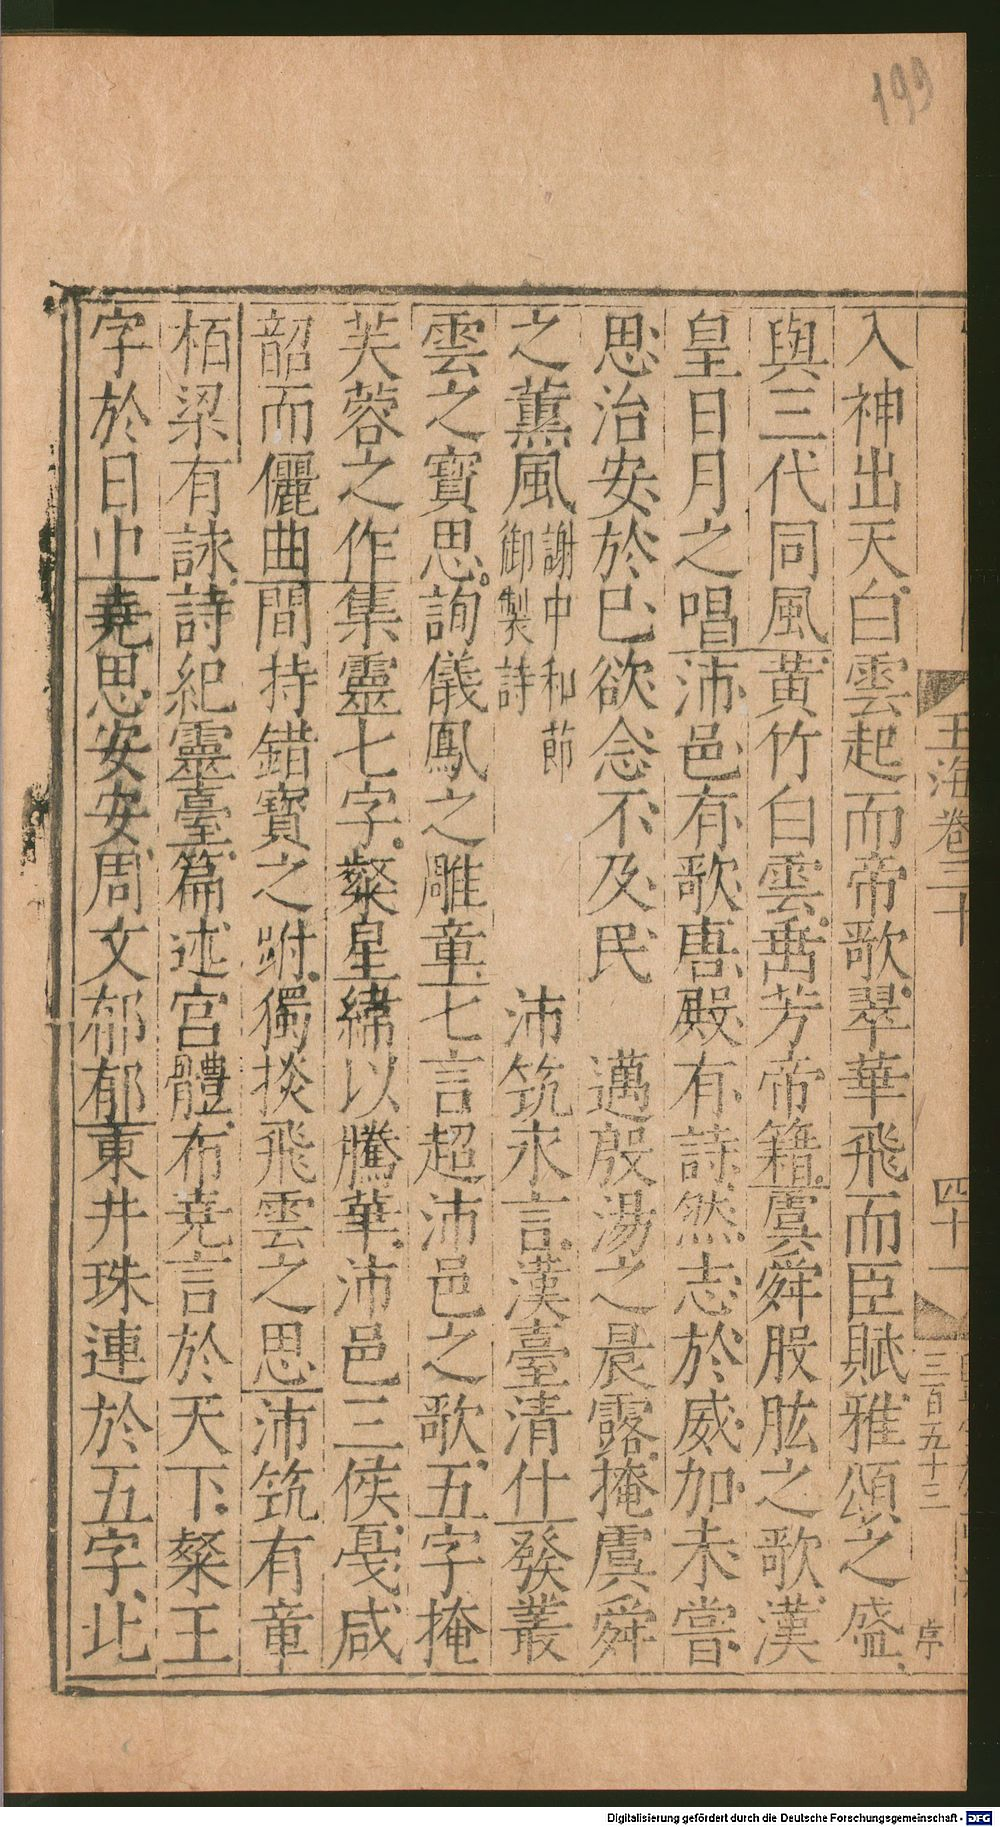 199
玉海卷三十
四十一
三百五十三
入神出天白雲起而帝歌翠華飛而臣賦雅頌之盛
與三代同風黃竹白雲垂芳帝籍虞舜股肱之歌漢
皇日月之唱沛邑有歌唐殿有詩然志於威加未嘗
思治安於巳欲念不及民　邁殷湯之晨露掩虞舜
之薰風謝中和節御製詩　沛筑永言漢臺清仕發叢
雲之寶思詢儀鳳之雕章七言超沛邑之歌五字掩
芙蓉之作集靈七字粲皇緯以騰華沛邑三侯戞咸
韶而儷曲間持錯寶之跗獨掞飛雲之思沛筑有章
栢梁有詠詩紀靈臺篇述宮體布堯言於天下粲王
字於日中堯思安安周文郁郁東井珠連於五字北
Digitalisierung gefördert durch die Deutsche Forschungsgemeinschaft - DFG